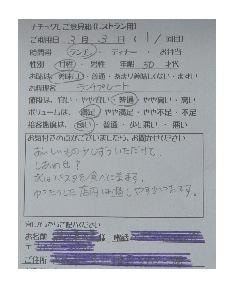 ご意見箱(レストラン用)
ご利用日 3月3日( 1 / 回目)
時間帯 ランチ・ディナー・お弁当
性別 女性・男性 年齢 50才代
お味は 美味しい・普通・あまり美味しくない・まずい
お料理名 ランチプレート
価格は、安い・やや安い・普通・やや高い・高い
ボリュームは、満足・やや満足・やや不足・不足
接客態度は、良い・普通・少し悪い・悪い
お気付きの点がございましたら、お聞かせください
おいしいものを少しずついただけて、
しあわせ?
次はパスタを食べに来ます。
ゆったりした店内は過しやすかったです。
ください
お名前 様 電話
〒
ご住所